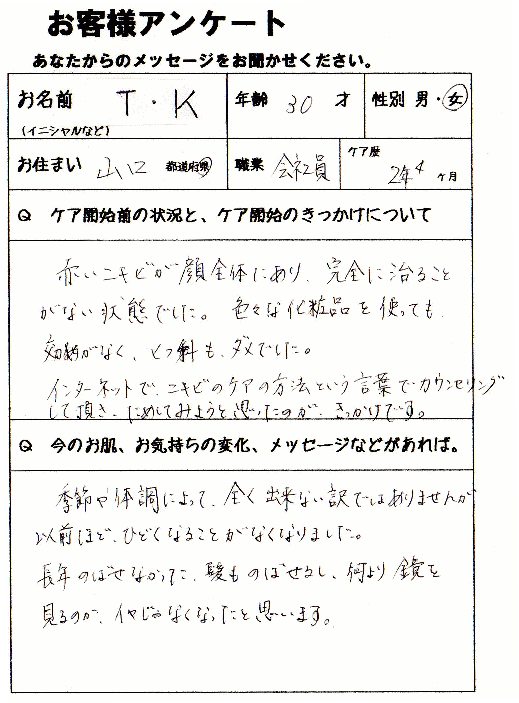 お客様アンケート
あなたからのメッセージをお聞かせください。
お名前 T・K 年齢 30 才 性別 男・女
(イニシャルなど)
お住まい 山口 都道府県 職業 会社員 ケア歴 2年4ヶ月
Q ケア開始前の状況と、ケア開始のきっかけについて
赤いニキビが顔全体にあり、完全に治ること
がない状態でした。色々な化粧品を使っても、
効果がなく、ヒフ科も、ダメでした。
インターネットで、ニキビのケアの方法という言葉でカウンセリング
して頂き、ためしてみようと思ったのが、きっかけです。
Q 今のお肌、お気持ちの変化、メッセージなどがあれば。
季節や体調によって、全く出来ない訳ではありませんが
以前ほど、ひどくなることがなくなりました。
長年のばせなかった、髪ものばせるし、何より鏡を
見るのが、イヤじゃなくなったと思います。